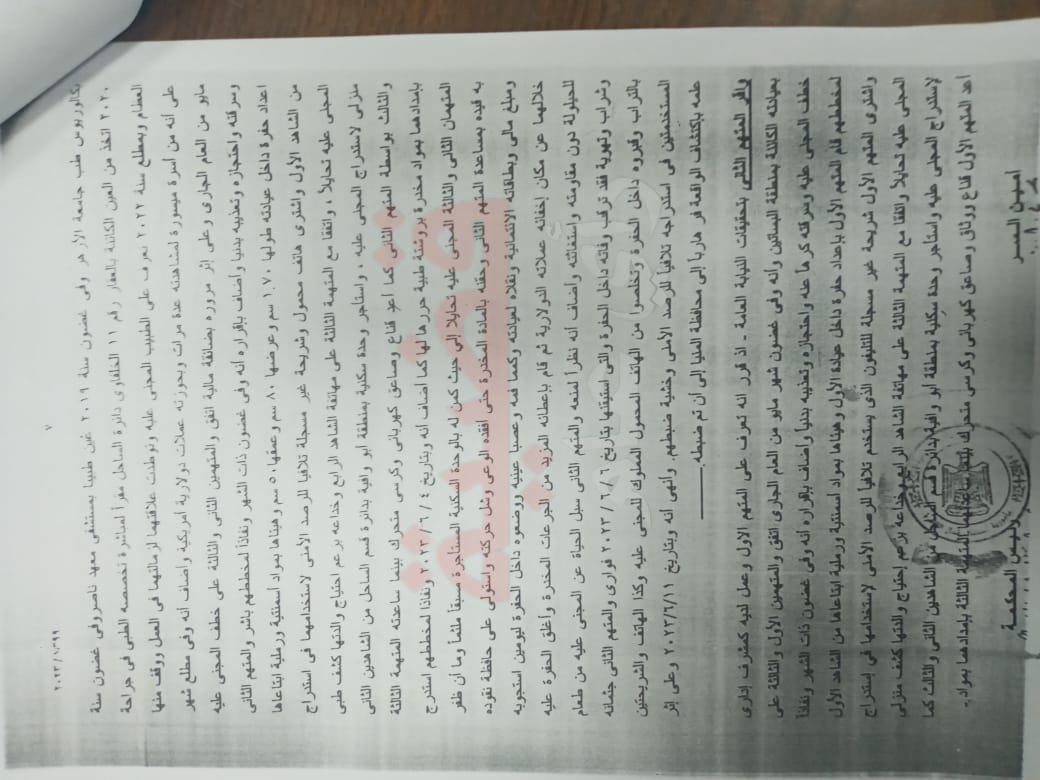 ٧
بكالوريوس طب جامعة الأزهر وفى غضون سنة ٢٠١٩ عين طبيبا بمستشفى معهد ناصر وفى غضون سنة
٢٠٢٠ اتخذ من العين الكائنة بالعقار رقم ١١ الخلفاوى دائرة الساحل مقراً لمباشرة تخصصه الطبى فى جراحة
العظام وبمطلع سنة ٢٠٢٢ تعرف على الطبيب المجنى عليه وتوطدت علاقتهما لزمالتهما فى العمل ووقف منها
على أنه من أسرة ميسورة لمشاهدته عدة مرات وبحوزته عملات دولارية أمريكية وأضاف أنه وفى مطلع شهر
مايو من العام الجارى وعلى إثر مروره بضائقة مالية اتفق والمتهمين الثانى والثالثة على خطف المجنى عليه
وسرقته واحتجازه وتعذيبه بدنيا وأضاف بإقراره أنه وفى غضون ذات الشهر ونفاذاً لمخططهم باشر والمتهم الثانى
اعداد حفرة داخل عيادته طولها ١.٧٠ سم وعرضها ٨٠ سم وعمقها ٥٠ سم وهيئاها بمواد أسمنتية ورملية ابتاعاها
من الشاهد الأول واشترى هاتف محمول وشريحة غير مسجلة تلافيا للرصد الأمنى لاستخدامهما فى استدراج
المجنى عليه تحايلاً ، واتفقا مع المتهمة الثالثة على مهاتفة الشاهد الرابع وخداعه بزعم احتياج والدتها كشف طبى
منزلى لاستدراج المجنى عليه ، واستأجر وحدة سكنية بمنطقة أبو وافية بدائرة قسم الساحل من الشاهدين الثانى
والثالث بواسطة المتهم الثانى كما أعد قناع وصاعق كهربائى وكرسى متحرك بينما ساعدته المتهمة الثالثة
بإمدادهما بمواد مخدرة بروشتة طبية حررها لها كما أضاف أنه وبتاريخ ٢٠٢٣/٦/٤ ونفاذا لمخططهم استدرج
المتهمان الثانى والثالثة المجنى عليه تحايلا إلى حيث كمن له بالوحدة السكنية المستأجرة مسبقاً ملثماً وما أن ظفر
به قيده بمساعدة المتهم الثانى وحقنه بالمادة المخدرة حتى أفقده الوعى وشل حركته واستولى على حافظة نقوده
ومبلغ مالى وبطاقاته الائتمانية ونقلاه لعيادته وكمما فمه وعصبا عينيه ووضعوه داخل الحفرة ليومين استجوبه
خلالهما عن مكان إخفائه عملاته الدولارية ثم قام بإعطائه المزيد من الجرعات المخدرة وأغلق الحفرة عليه
للحيلولة دون مقاومته واستغاثته وأضاف أنه نظراً لمنعه والمتهم الثانى سبل الحياة عن المجنى عليه من طعام
وشراب وتهوية فقد ترقب وفاته داخل الحفرة والتى استيقنها بتاريخ ٢٠٢٣/٦/٦ فوارى والمتهم الثانى جثمانه
بالتراب وقبروه داخل الحفرة وتخلصوا من الهاتف المحمول المملوك للمجنى عليه وكذا الهاتف والشريحتين
المستخدمتين فى استدراجه تلافياً للرصد الأمنى وخشية ضبطهم. وأنهى أنه وبتاريخ ٢٠٢٣/٦/١١ وعلى إثر
علمه باكتشاف الواقعة فر هارباً إلى محافظة المنيا إلى أن تم ضبطه.
وأقر المتهم الثانى بتحقيقات النيابة العامة - اذ قرر أنه تعرف على المتهم الأول وعمل لديه كمشرف إدارى
بعيادته الكائنة بمنطقة البساتين وأنه وفى غضون شهر مايو من العام الجارى اتفق والمتهمين الأول والثالثة على
خطف المجنى عليه وسرقته كرهاً عنه واحتجازه وتعذيبه بدنياً وأضاف بإقراره أنه وفى غضون ذات الشهر ونفاذاً
لمخططهم قام المتهم الأول بإعداد حفرة داخل عيادة الأول وهيئاها بمواد أسمنتية ورملية ابتاعاها من الشاهد الأول
واشترى المتهم الأول شريحة غير مسجلة للتليفون الذى يستخدم تلافيا للرصد الأمنى لاستخدامها فى استدراج
المجنى عليه تحايلاً واتفقا مع المتهمة الثالثة على مهاتفة الشاهد الرابع وخداعه بزعم احتياج والدتها كشف منزلى
لاستدراج المجنى عليه واستأجر وحدة سكنية بمنطقة أبو وافية بدائرة قسم الساحل من الشاهدين الثانى والثالث كما
أعد المتهم الأول قناع ووثاق وصاعق كهربائى وكرسى متحرك بينما ساعدتهما المتهمة الثالثة بإمدادهما بمواد
أمين السر
رئيس المحكمة